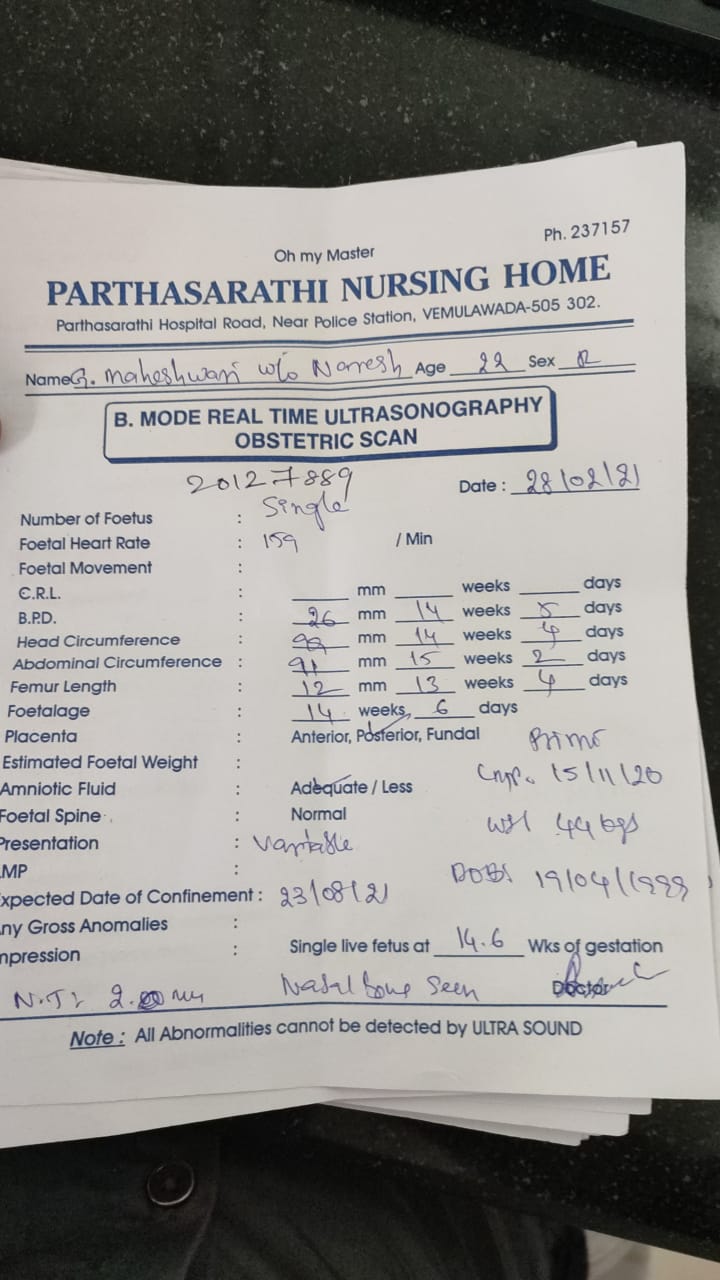 Ph. 237157
Oh my Master
PARTHASARATHI NURSING HOME
Parthasarathi Hospital Road, Near Police Station, VEMULAWADA-505 302.
Name G. Maheshwari w/o Narresh Age 22 Sex
B. MODE REAL TIME ULTRASONOGRAPHY
OBSTETRIC SCAN
20127889
Date : 28/02/21
Number of Foetus : Single
Foetal Heart Rate : 159 / Min
Foetal Movement :
C.R.L. : mm weeks days
B.P.D. : 26 mm 14 weeks 5 days
Head Circumference : 99 mm 14 weeks 4 days
Abdominal Circumference : 91 mm 15 weeks 2 days
Femur Length : 12 mm 13 weeks 4 days
Foetalage : 14 weeks, 6 days
Placenta : Anterior, Posterior, Fundal
Primi
Estimated Foetal Weight :
Lmp. 15/11/20
Amniotic Fluid : Adequate / Less
Foetal Spine : Normal
wt 44 kgs
Presentation : Variable
MP :
DOB: 19/04/1999
xpected Date of Confinement : 23/08/21
ny Gross Anomalies :
mpression : Single live fetus at 14.6 Wks of gestation
N.T: 2. mm Nasal bone seen Doctor
Note : All Abnormalities cannot be detected by ULTRA SOUND